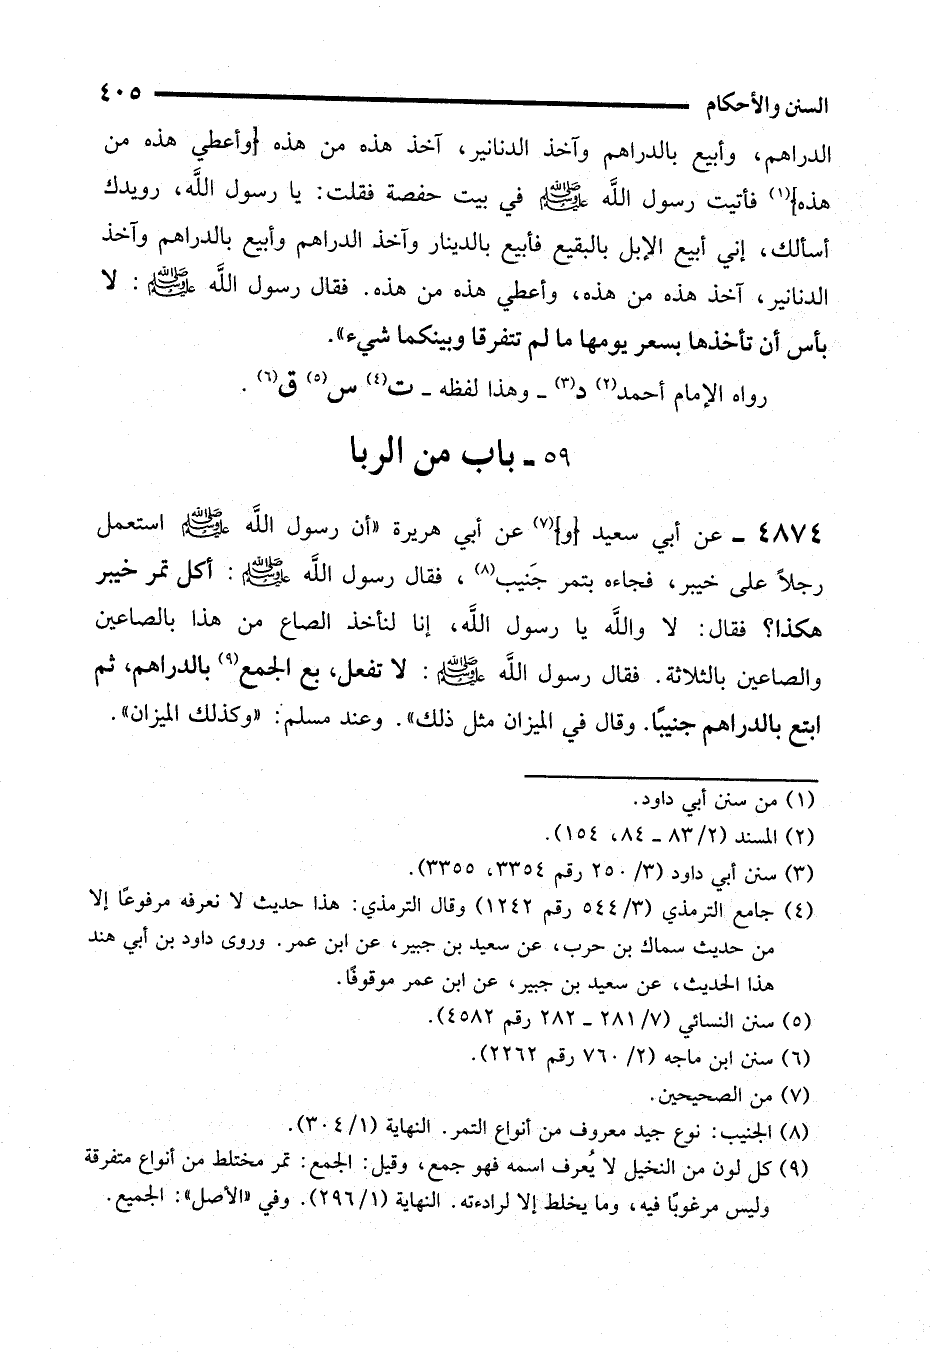 السنن والأحكام ٤٠٥
الدراهم، وأبيع بالدراهم وآخذ الدنانير، آخذ هذه من هذه {وأعطي هذه من
هذه}(١) فأتيت رسول اللَّه ﷺ في بيت حفصة فقلت: يا رسول اللَّه، رويدك
أسألك، إني أبيع الإبل بالبقيع فأبيع بالدينار وآخذ الدراهم وأبيع بالدراهم وآخذ
الدنانير، آخذ هذه من هذه، وأعطي هذه من هذه. فقال رسول اللَّه ﷺ: لا
بأس أن تأخذها بسعر يومها ما لم تتفرقا وبينكما شيء».
رواه الإمام أحمد(٢) د(٣) ـ وهذا لفظه ـ ت(٤) س(٥) ق(٦) .
٥٩ ـ باب من الربا
٤٨٧٤ ـ عن أبي سعيد {و}(٧) عن أبي هريرة «أن رسول اللَّه ﷺ استعمل
رجلاً على خيبر، فجاءه بتمر جَنيب(٨) ، فقال رسول اللَّه ﷺ: أكل تمر خيبر
هكذا؟ فقال: لا واللَّه يا رسول اللَّه، إنا لنأخذ الصاع من هذا بالصاعين
والصاعين بالثلاثة. فقال رسول اللَّه ﷺ: لا تفعل، بع الجمع(٩) بالدراهم، ثم
ابتع بالدراهم جنيبًا. وقال في الميزان مثل ذلك». وعند مسلم: «وكذلك الميزان».
(١) من سنن أبي داود.
(٢) المسند (٢/ ٨٣ ـ ٨٤، ١٥٤).
(٣) سنن أبي داود (٣/ ٢٥٠ رقم ٣٣٥٤، ٣٣٥٥).
(٤) جامع الترمذي (٣/ ٥٤٤ رقم ١٢٤٢) وقال الترمذي: هذا حديث لا نعرفه مرفوعًا إلا
من حديث سماك بن حرب، عن سعيد بن جبير، عن ابن عمر. وروى داود بن أبي هند
هذا الحديث، عن سعيد بن جبير، عن ابن عمر موقوفًا.
(٥) سنن النسائي (٧/ ٢٨١ ـ ٢٨٢ رقم ٤٥٨٢).
(٦) سنن ابن ماجه (٢/ ٧٦٠ رقم ٢٢٦٢).
(٧) من الصحيحين.
(٨) الجنيب: نوع جيد معروف من أنواع التمر. النهاية (١/ ٣٠٤).
(٩) كل لون من النخيل لا يُعرف اسمه فهو جمع، وقيل: الجمع: تمر مختلط من أنواع متفرقة
وليس مرغوبًا فيه، وما يخلط إلا لرداءته. النهاية (١/ ٢٩٦). وفي «الأصل»: الجميع.